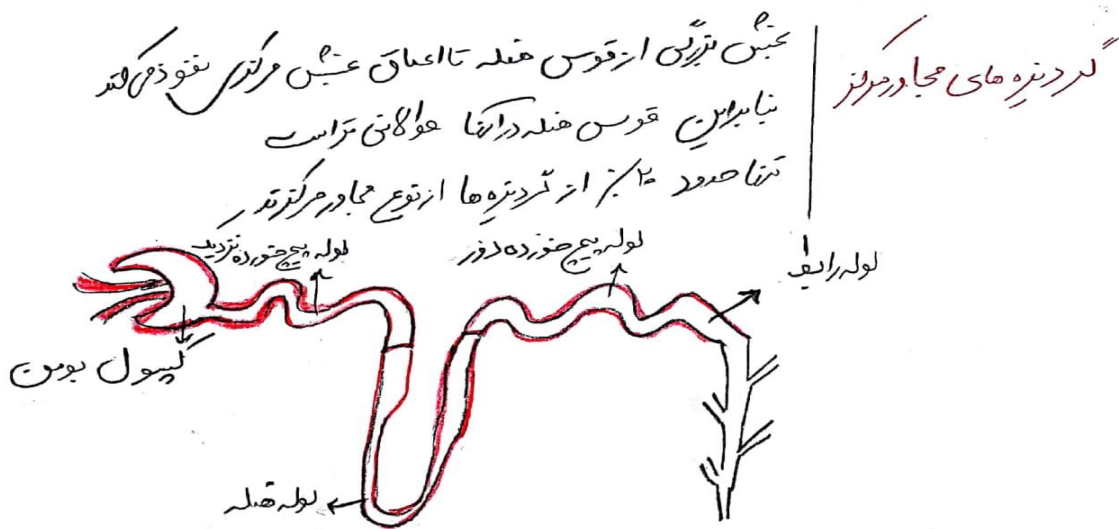 گردیزه های مجاور مرکز
بخش بزرگی از قوس هنله تا اعماق بخش مرکزی نفوذ می کند
بنابراین قوس هنله در آنها طولانی تر است
تنها حدود ۲۰٪ از گردیزه ها از نوع مجاور مرکزند
لوله پیچ خورده نزدیک
لوله پیچ خورده دور
لوله رابط
کپسول بومن
لوله هنله